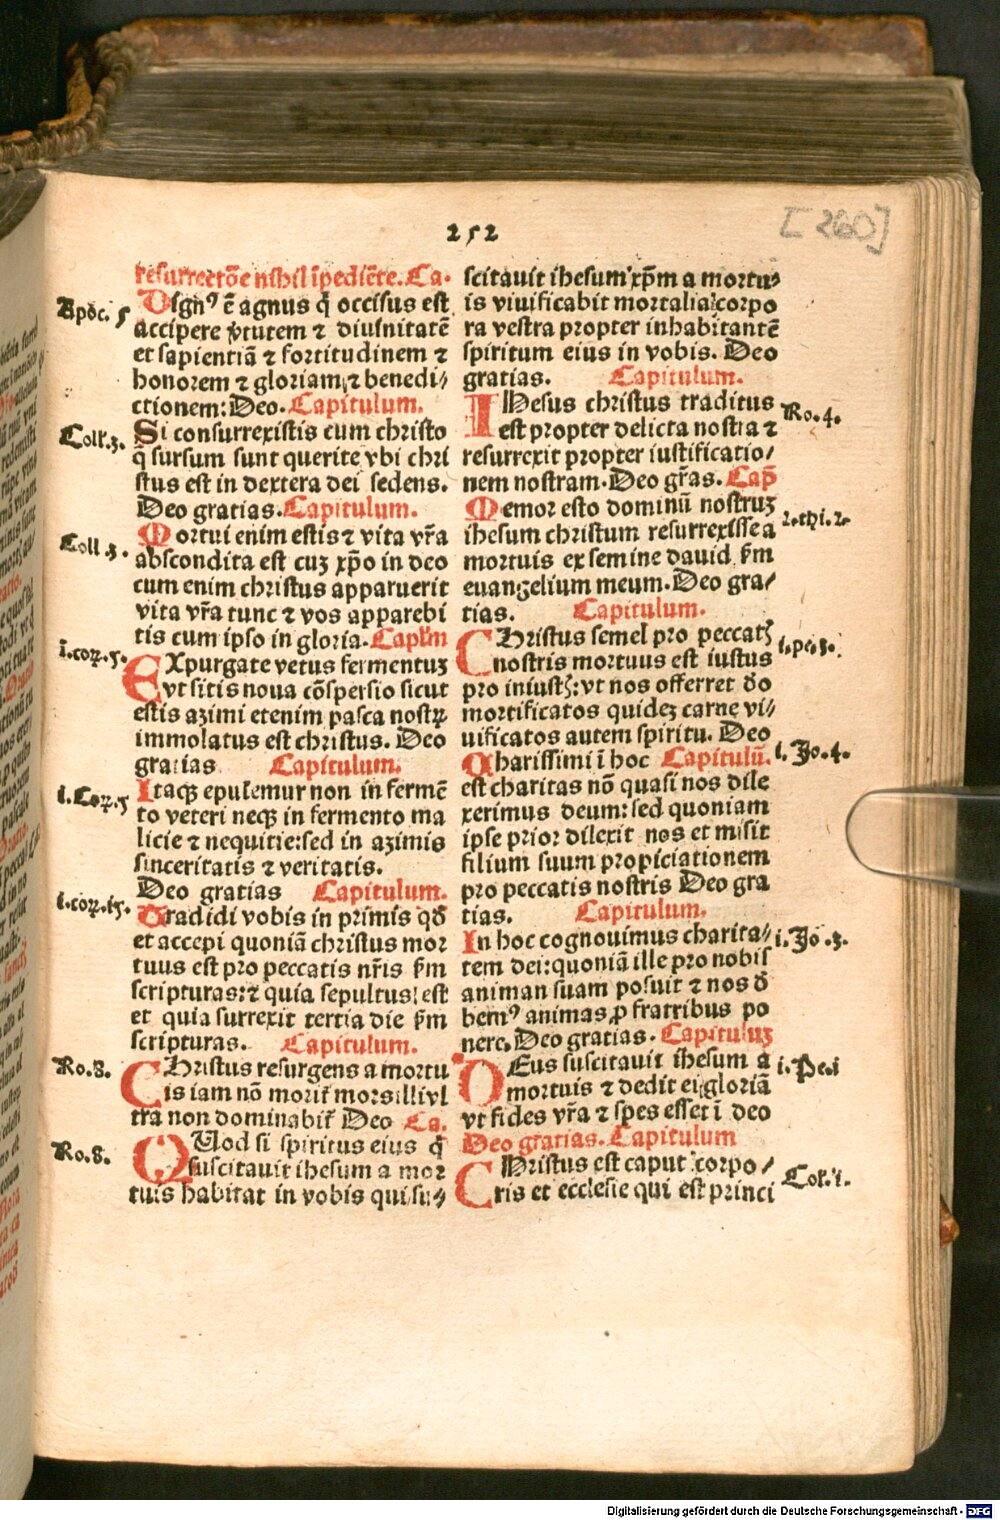 252
[260]
resurrectõe nihil ĩpediẽte. Ca.
Apoc. 5
Dignꝰ ẽ agnus q̃ occisus est
accipere v̾tutem ⁊ diuinitatẽ
et sapientiã ⁊ fortitudinem ⁊
honorem ⁊ gloriam ⁊ benedi/
ctionem: Deo. Capitulum.
Coll. 3.
Si consurrexistis cum christo
q̃ sursum sunt querite vbi chri
stus est in dextera dei sedens.
Deo gratias. Capitulum.
Coll 3.
Mortui enim estis ⁊ vita vr̃a
abscondita est cuꝫ xp̃o in deo
cum enim christus apparuerit
vita vr̃a tunc ⁊ vos apparebi
tis cum ipso in gloria. Caplm̃
i. coꝝ. 5.
EXpurgate vetus fermentuꝫ
vt sitis noua cõspersio sicut
estis azimi etenim pasca nostꝝ
immolatus est christus. Deo
gratias Capitulum.
i. Coꝝ. 5
Itaqꝫ epulemur non in fermẽ
to veteri neqꝫ in fermento ma
licie ⁊ nequitie: sed in azimis
sinceritatis ⁊ veritatis.
Deo gratias Capitulum.
i. coꝝ. 15.
Tradidi vobis in primis qđ
et accepi quoniã christus mor
tuus est pro peccatis nr̃is ẜm
scripturas: ⁊ quia sepultus est
et quia surrexit tertia die ẜm
scripturas. Capitulum.
Ro. 8.
CHristus resurgens a mortu
is iam nõ morit᷑ mors illi vl
tra non dominabit᷑ Deo Ca.
Ro. 8.
QUod si spiritus eius q̃
suscitauit ihesum a mor
tuis habitat in vobis qui su/
scitauit ihesum xp̃m a mortu/
is viuificabit mortalia corpo
ra vestra propter inhabitantẽ
spiritum eius in vobis. Deo
gratias. Capitulum.
IHesus christus traditus
Ro. 4.
est propter delicta nostra ⁊
resurrexit propter iustificatio/
nem nostram. Deo gr̃as. Cap̃
Memor esto dominũ nostruꝫ
2. thi. 2.
ihesum christum resurrexisse a
mortuis ex semine dauid ẜm
euangelium meum. Deo gra/
tias. Capitulum.
CHristus semel pro peccatꝭ
i. pe. 3.
nostris mortuus est iustus
pro iniustꝭ: vt nos offerret do
mortificatos quideꝫ carne vi/
uificatos autem spiritu. Deo
Charissimi ĩ hoc Capitulũ.
i. Jo. 4.
est charitas nõ quasi nos dile
xerimus deum: sed quoniam
ipse prior dilexit nos et misit
filium suum propiciationem
pro peccatis nostris Deo gra
tias. Capitulum.
In hoc cognouimus charita/
i. Jo. 3.
tem dei: quoniã ille pro nobis
animan suam posuit ⁊ nos đ
bemꝰ animas ꝓ fratribus po
nere. Deo gratias. Capituluꝫ
DEus suscitauit ihesum a
i. Pe. i
mortuis ⁊ dedit ei gloriã
vt fides vr̃a ⁊ spes esset ĩ deo
Deo gratias. Capitulum
CHristus est caput corpo/
Col. i.
ris et ecclesie qui est princi
Digitalisierung gefördert durch die Deutsche Forschungsgemeinschaft - DFG